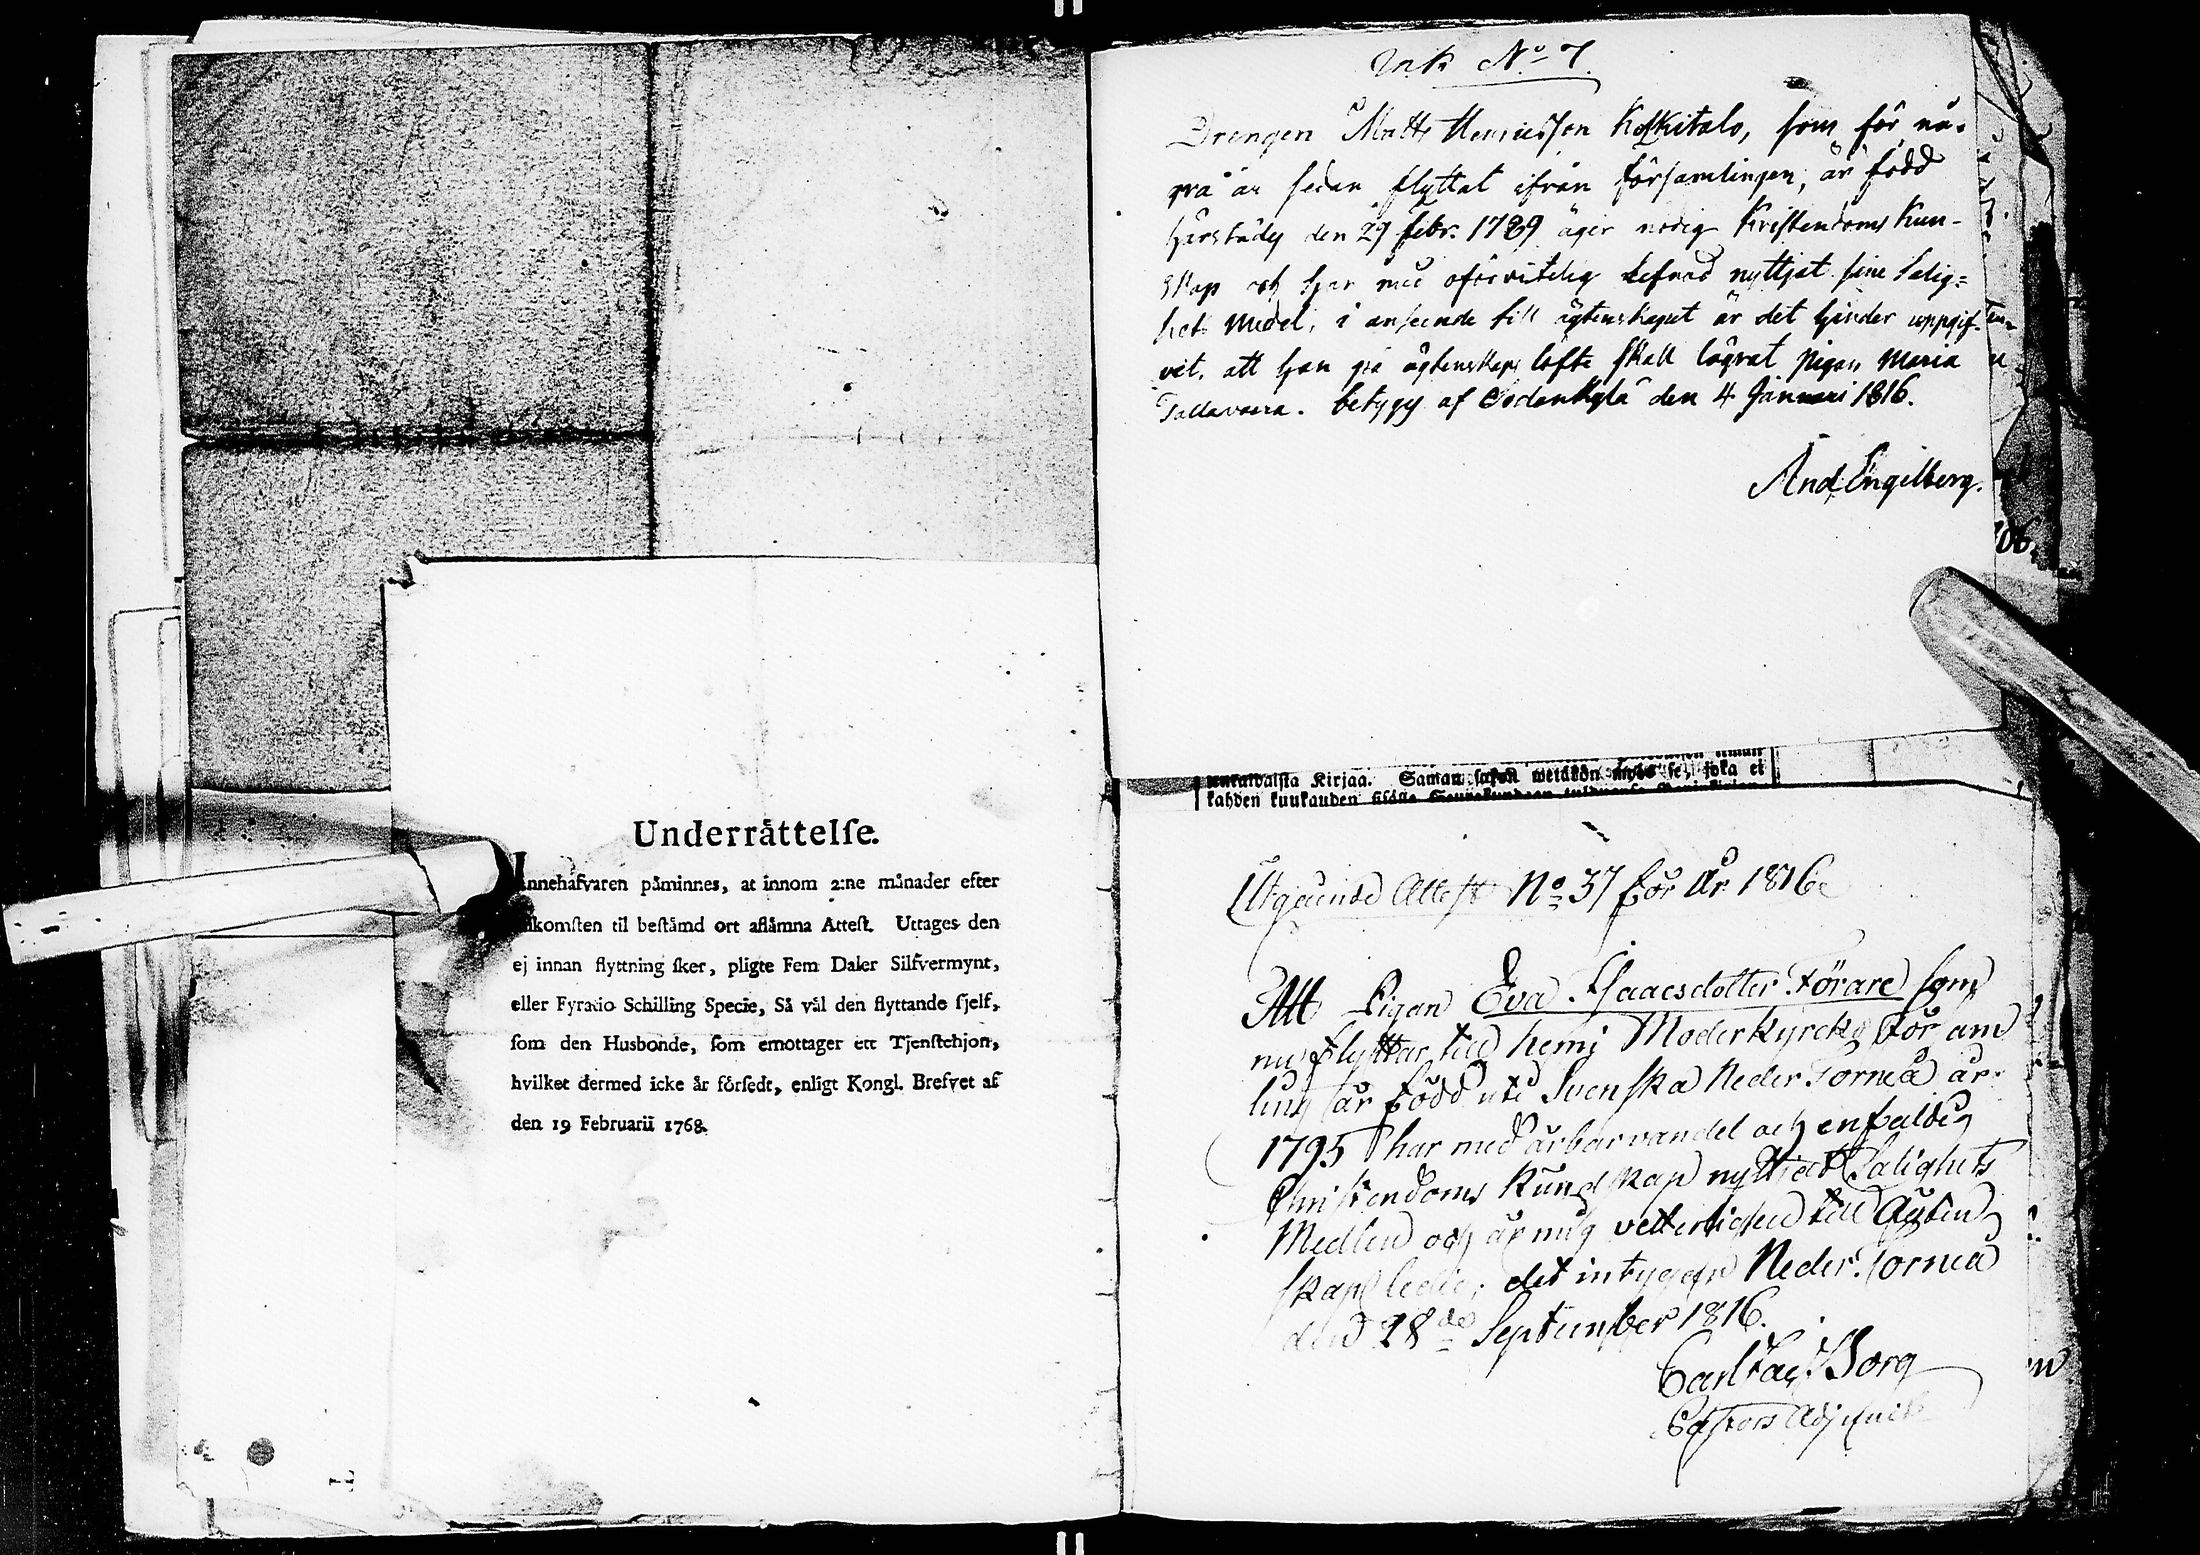 Underrättelse.
Innehafvaren påminnes, at innom 2:ne månader efter
ankomsten til bestämd ort aflämna Attest. Uttages den
ej innan flyttning sker, pligte Fem Daler Silfvermynt,
eller Fyratio Schilling Specie, Så väl den flyttande sjelf,
som den Husbonde, som emottager ett Tjenstehjon,
hvilket dermed icke är försedt, enligt Kongl. Brefvet af
den 19 Februarii 1768.
Ink No 7.
Drengen Matts Henricsson Koskitalo, som för nå-
gra år sedan flyttat ifrån församlingen, är född
härstädes den 29 febr. 1789 äger nödig Kristendoms Kun-
skap och har med oförvitelig lefnad nyttjat sine Salig=
hets Medel, i anseende till ägtenskapet är det hinder uppgif-
vit, att han på ägtenskaps löfte skall lägrat pigan Maria
Tallavaara. betygg af Sodankylä den 4 Januari 1816.
And. Engelberg.
106.
Kirjaa. Saman sakon wetäkön myös se, joka ei
kahden kuukauden sisällä
Utgående Attest No 37 för År 1816
Att Pigan Eva Isaacsdotter Förare som
nu flyttar till Kemi Moderkyrcko För am
ling är född uti Svenska Neder Torneå år
1795 har med ärbar vandel och enfaldig
Christendoms Kundskap nyttjat Salighets
Medlen och är mig vetterligen till Ägten
skap ledig; det intygar Neder Torneå
den 28de September 1816.
Carl Jac. Borg
Pastors Adjunct